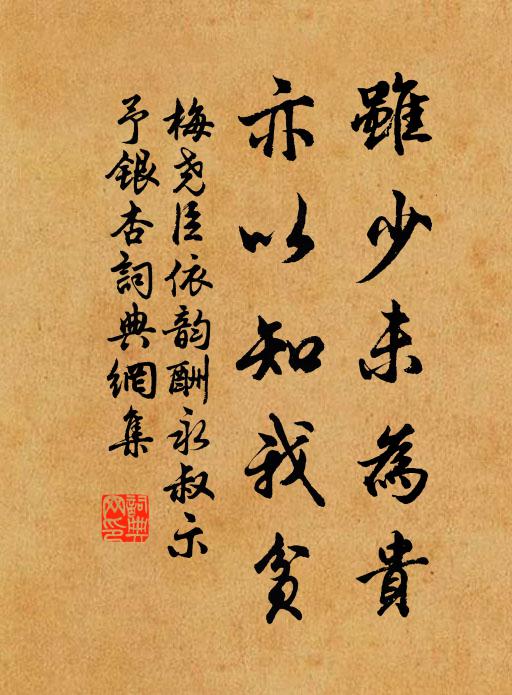 雖少未為貴
亦以知我貧
梅尧臣依韵酬永叔示
予銀杏詞典網集
詞典網印